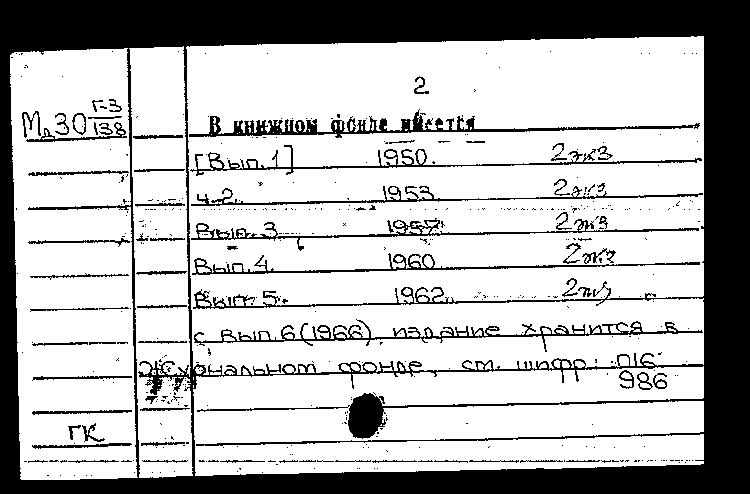 2
Мд30 Г-3/138
В книжном фонде имеется
[Вып.1] 1950. 2 экз
ч.2. 1953. 2 экз
Вып. 3 1957 2 экз
Вып. 4. 1960 2 экз
Вып. 5. 1962. 2 экз
с вып. 6 (1966) издание хранится в
Журнальном фонде, см. шифр: П16
986
ГК